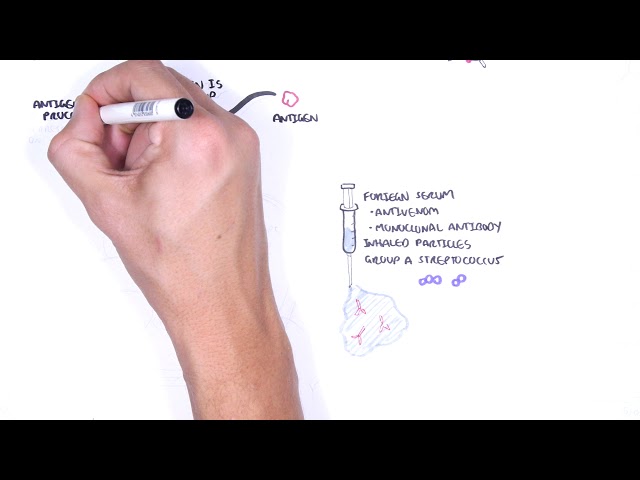 IS
ANTIGEN
FORIEGN SERUM
- ANTIVENOM
- MONOCLONAL ANTIBODY
INHALED PARTICLES
GROUP A STREPTOCOCCUS